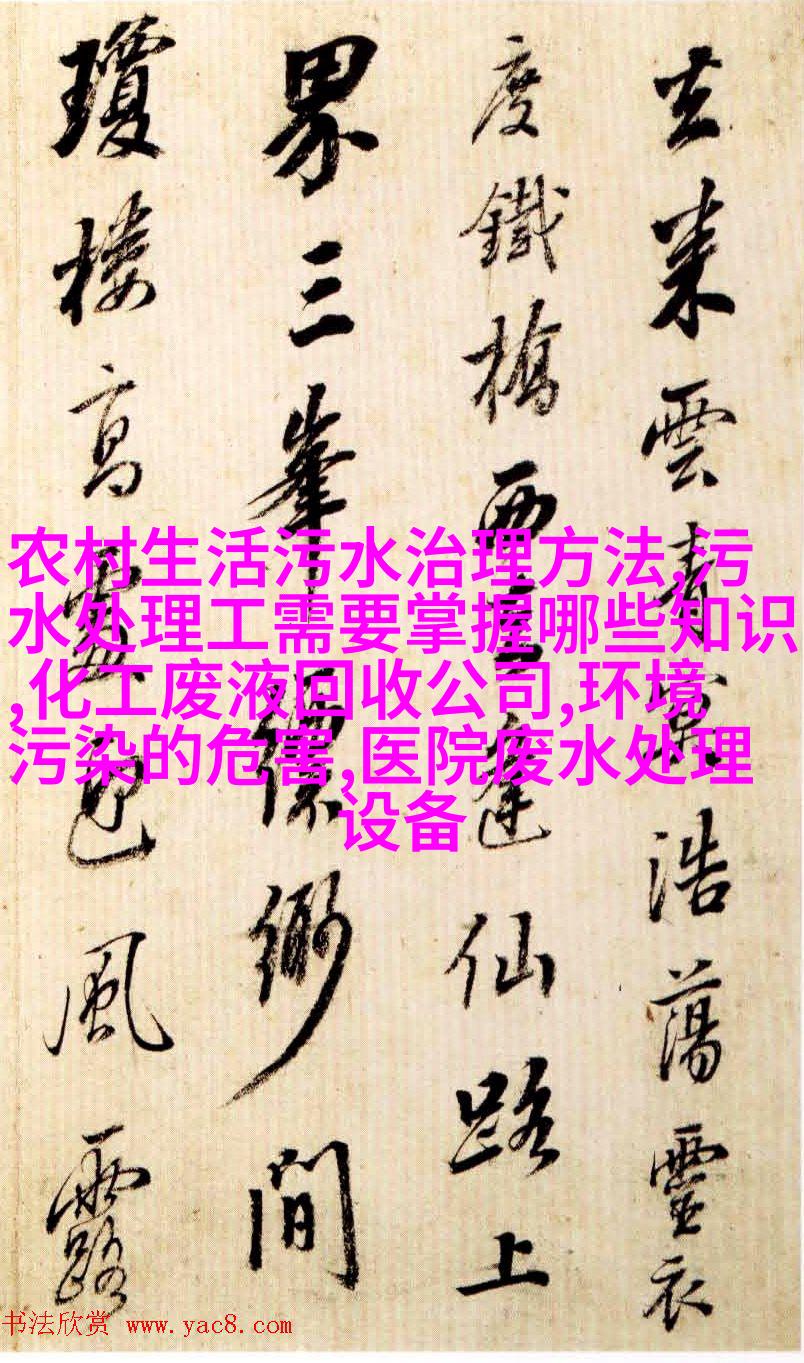 雲青浩蕩靈衣
度鐵橋西仙路上
界三峯縹緲間
瓊樓高處風露
农村生活污水治理方法,污
水处理工需要掌握哪些知识
,化工废液回收公司,环境
污染的危害,医院废水处理
设备
书法欣赏 www.yac8.com